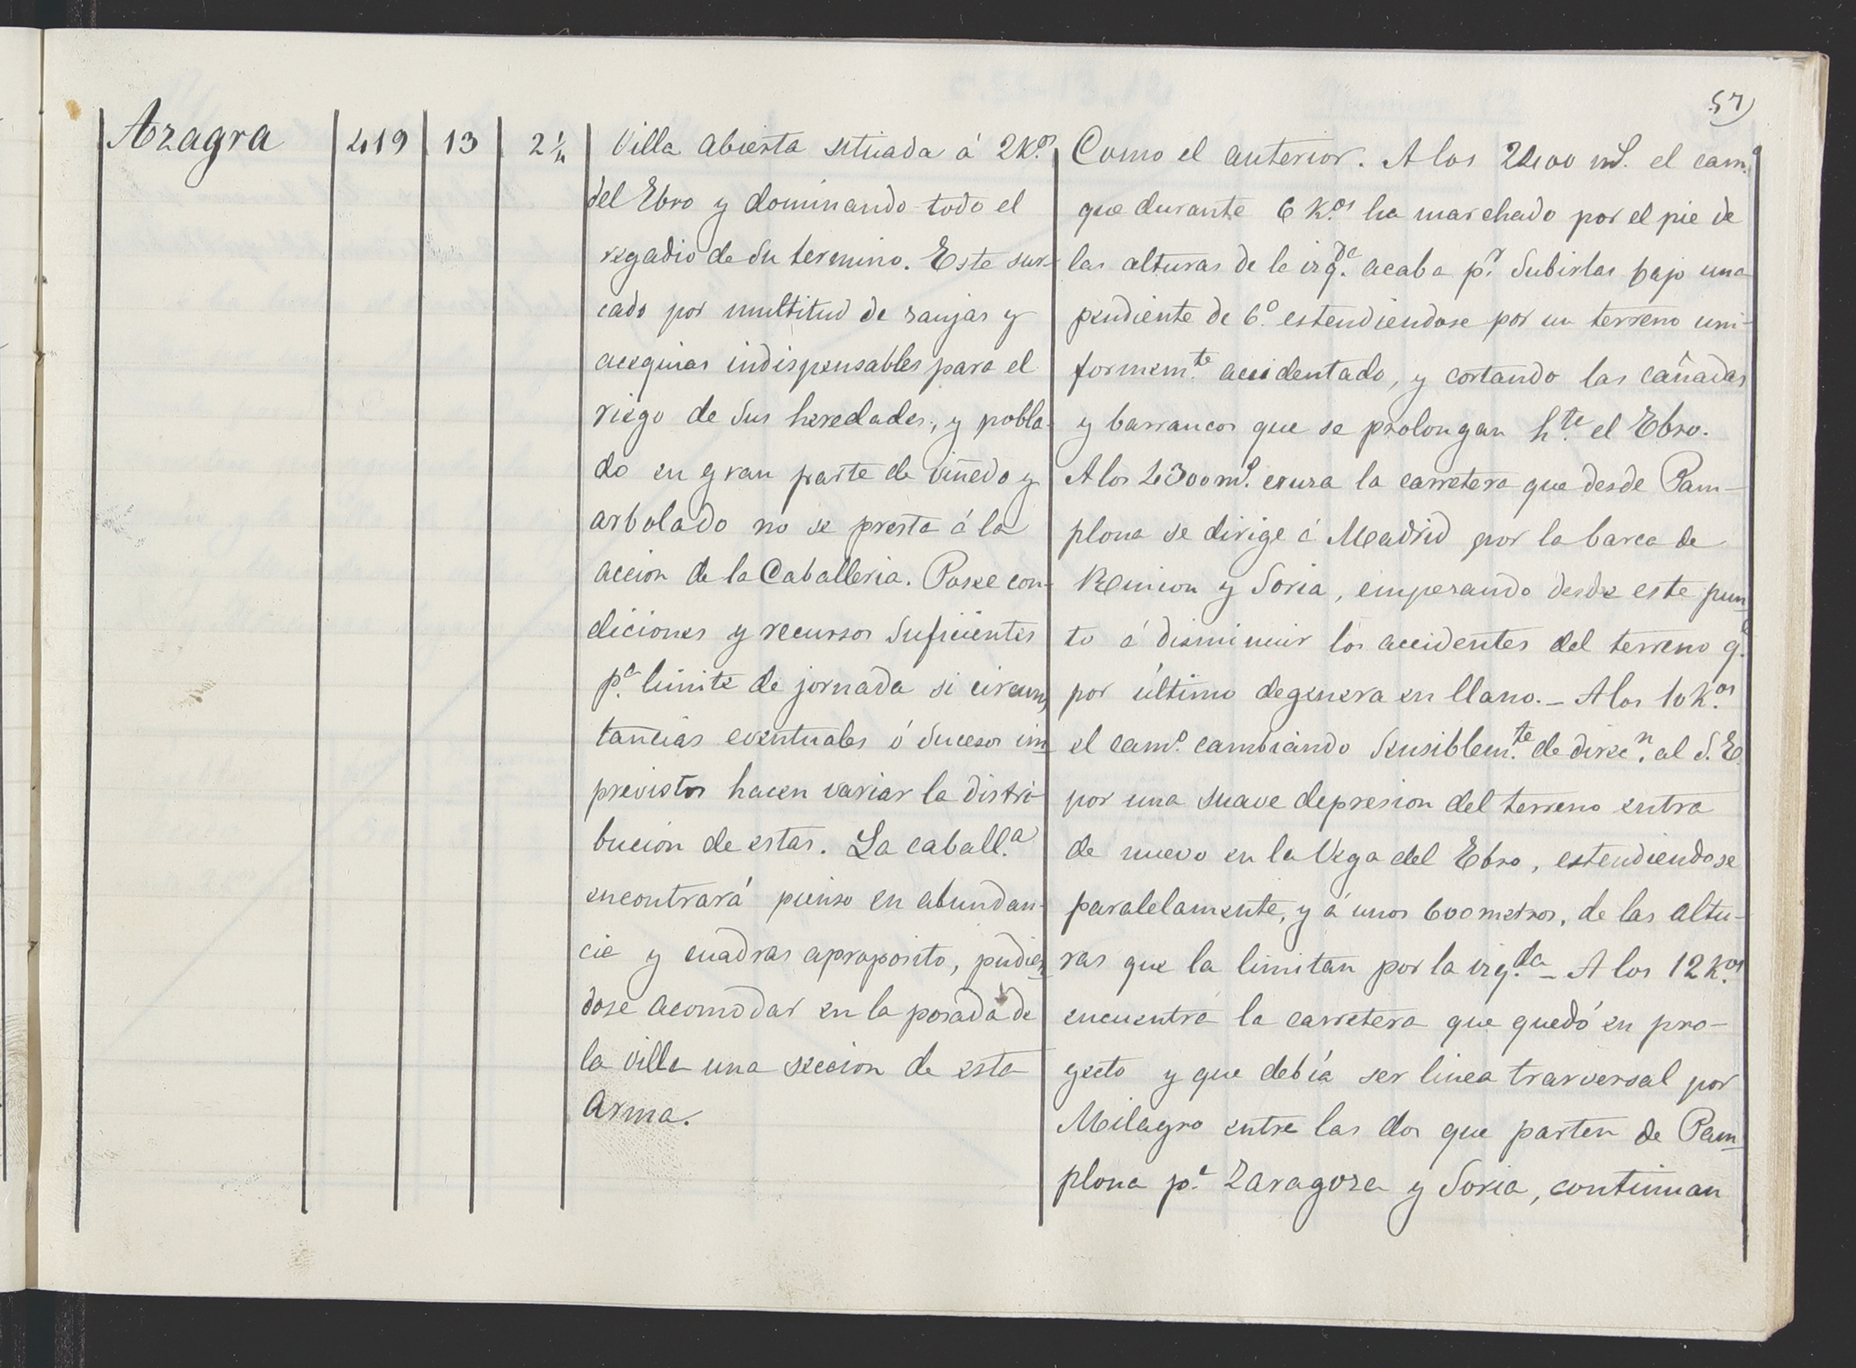 57
Azagra 419 13 2 ¼
Villa abierta situada á 2 K.os
del Ebro y dominando todo el
regadio de su termino. Este sur-
cado por multitud de zanjas y
acequias indispensables para el
riego de sus heredades, y pobla-
do en gran parte de viñedo y
arbolado no se presta á la
accion de la Caballeria. Posee con-
diciones y recursos suficientes
p.a limite de jornada si circuns
tancias eventuales ó sucesos im-
previstos hacen variar la distri-
bucion de estas. La caball.a
encontrará pienso en abundan-
cia y cuadras aproposito, pudien-
dose acomodar en la posada de
la villa una seccion de esta
Arma.
Como el anterior. A los 2400 m.s el cam.o
que durante 6 K.os ha marchado por el pie de
las alturas de la izq.da acaba p.r subirlas bajo una
pendiente de 6.o estendiendose por un terreno uni-
formem.te accidentado, y cortando las cañadas
y barrancos que se prolongan h.te el Ebro.
A los 4300 m.s cruza la carretera que desde Pam-
plona se dirige á Madrid por la barca de
Rincon y Soria, empezando desde este pun
to á disminuir los accidentes del terreno q.e
por último degenera en llano. - A los 10 K.os
el cam.o cambiando sensiblem.te de direc.n al S.E.
por una suave depresion del terreno entra
de nuevo en la Vega del Ebro, estendiendose
paralelamente, y á unos 600 metros, de las altu-
ras que la limitan por la izq.da - A los 12 K.os
encuentra la carretera que quedó en pro-
yecto y que debía ser linea trarversal por
Milagro entre las dos que parten de Pam-
plona p.a Zaragoza y Soria, continuan